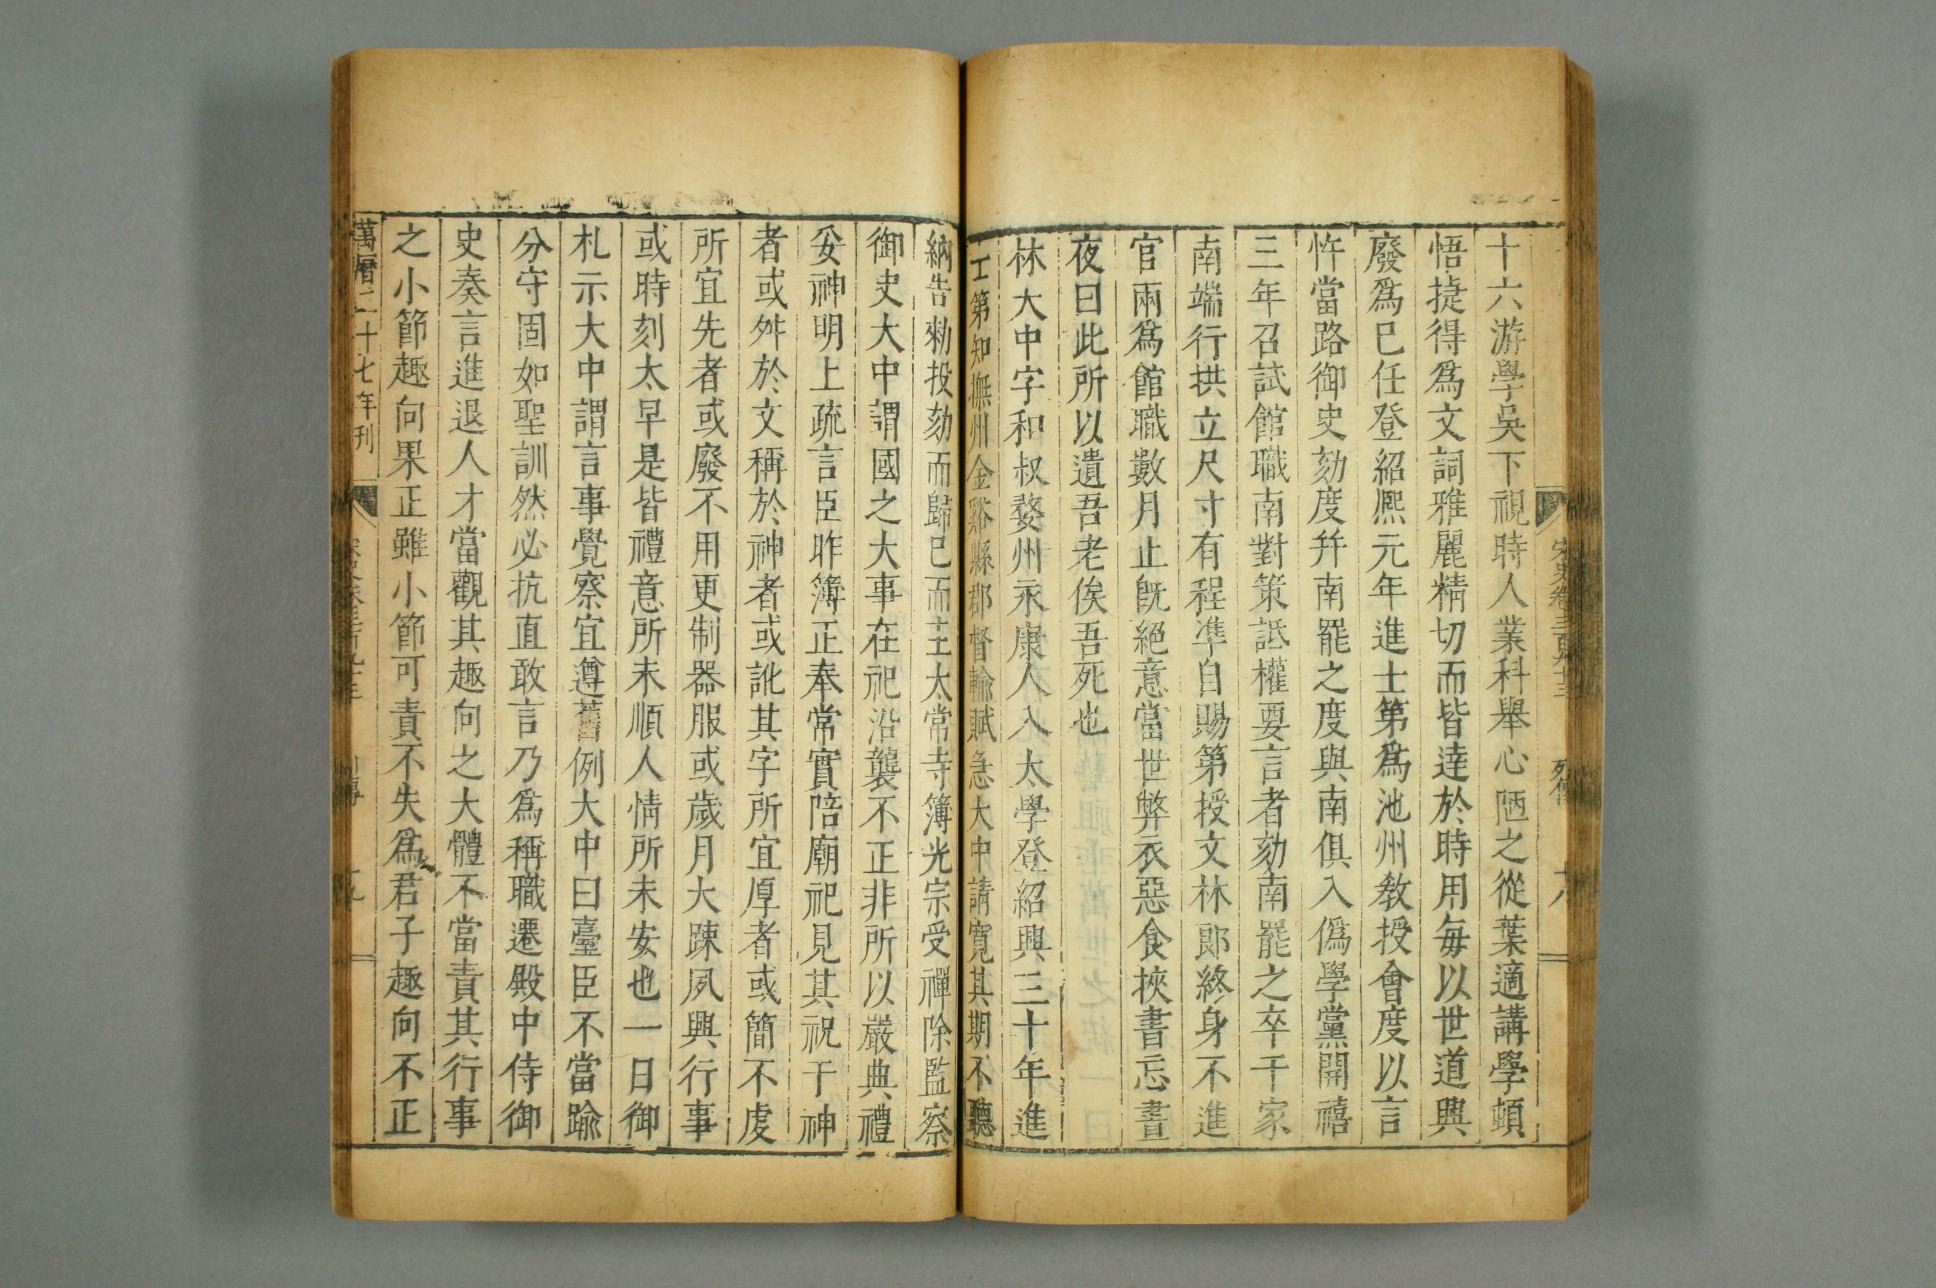 十六游學吳下視時人業科舉心陋之從葉適講學頓
悟捷得爲文詞雅麗精切而皆逹於時用每以世道興
廢爲已任登紹熈元年進士第爲池州教授會度以言
忤當路御史劾度幷南罷之度與南俱入僞學黨開禧
三年召試館職南對策詆權要言者劾南罷之卒于家
南端行拱立尺寸有程準自賜第授文林郞終身不進
官兩爲館職數月止旣絕意當世弊衣惡食挾書忘晝
夜曰此所以遺吾老俟吾死也
林大中字和叔婺州永康人入太學登紹興三十年進
士第知撫州金谿縣郡督輸賦急大中請寬其期不聽
納告勑投劾而歸已而主太常寺簿光宗受禪除監察
御史大中謂國之大事在祀沿襲不正非所以嚴典禮
妥神明上疏言臣昨簿正奉常實陪廟祀見其祝于神
者或舛於文稱於神者或訛其字所宜厚者或簡不虔
所宜先者或廢不用更制器服或歲月大踈夙興行事
或時刻太早是皆禮意所未順人情所未安也一日御
札示大中謂言事覺察宜遵舊例大中曰臺臣不當踰
分守固如聖訓然必抗直敢言乃爲稱職遷殿中侍御
史奏言進退人才當觀其趣向之大體不當責其行事
之小節趣向果正雖小節可責不失爲君子趣向不正
萬曆二十七年刊